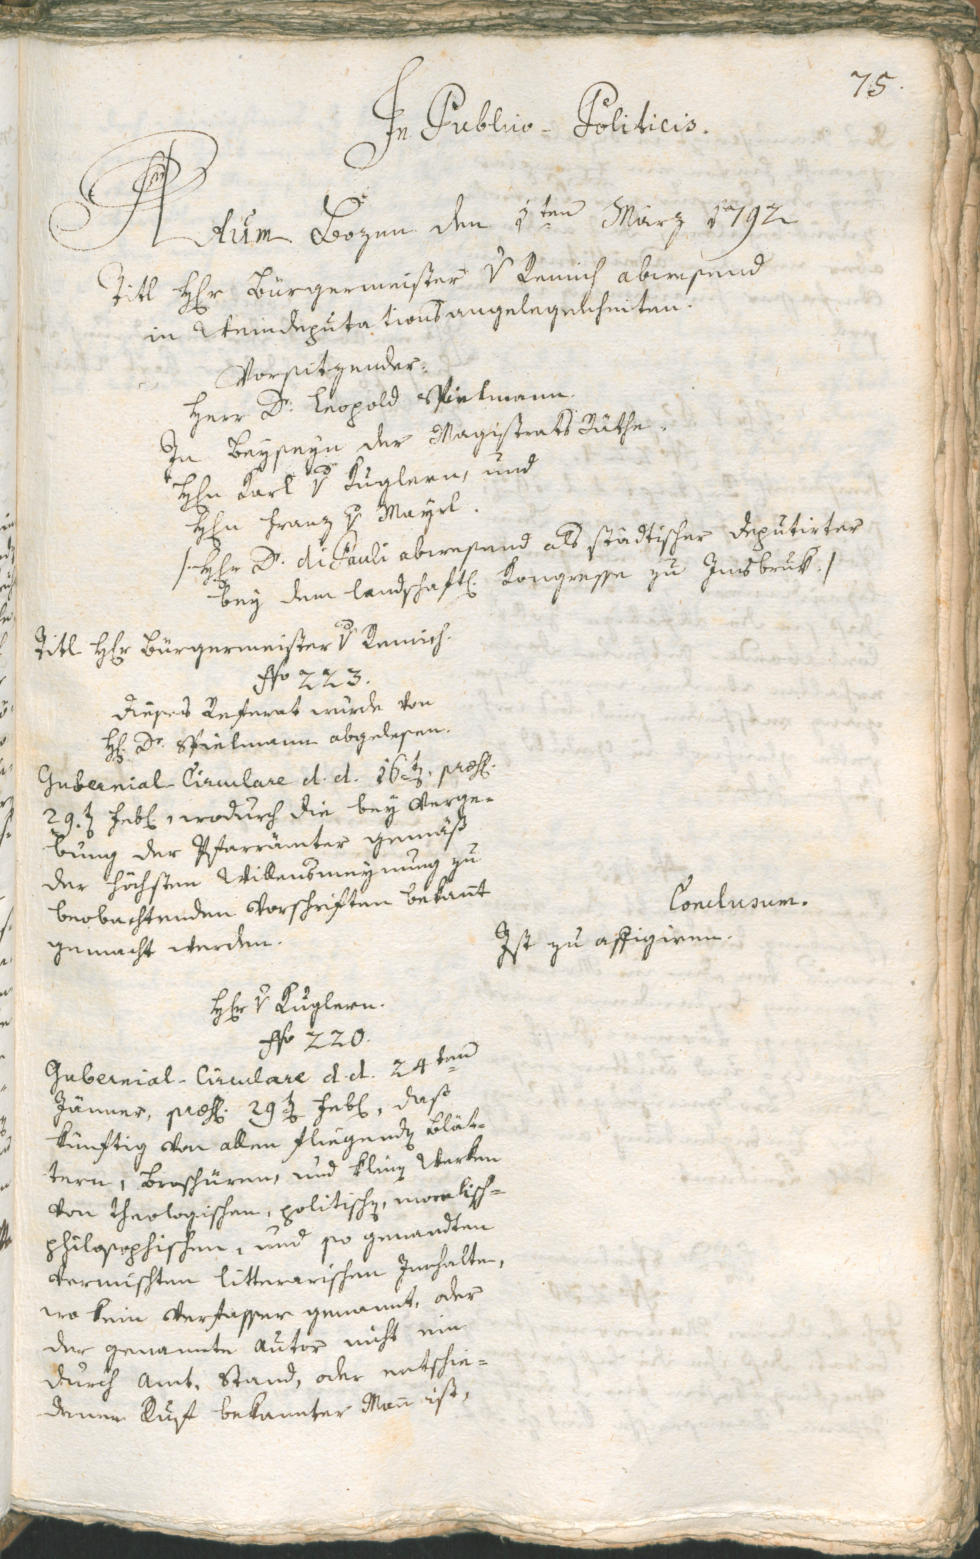 75.
In Publico-Politicis.
Actum Bozen den 1ten März 1792
Titl Hr Bürgermeister v Remich abwesend
in Weindeputationsangelegenheiten.
Vorsitzender:
Herr Dr. Leopold Spielmann.
In Beyseyn der Magistrats Räthe.
Hrn Karl v Kuglern, und
Hrn Franz v Mayrl.
/: Hr Dr. di Pauli abwesend als städtischer Deputirter
bey dem landschaftl. Kongresse zu Innsbruk. /
Titl Hr Bürgermeister v Remich.
No 223.
Dieses Referat wurde von
H. Dr. Spielmann abgelesen.
Gubernial-Circulare d. d. 16t, præs.
29.t Febr., wodurch die bey Verge-
bung der Pfarrämter gemäß
der höchsten Willensmeynung zu
beobachtenden Vorschriften bekannt
gemacht werden.
Conclusum.
Ist zu affigiren.
Hr v Kuglern.
No 220.
Gubernial-Circulare d. d. 24ten
Jänner, præs. 29t Febr., daß
künftig von allen fliegendn Blät-
tern, Broschüren, und kleinn Werken
von theologischen, politischn, moralisch-
philosophischen, und so genandten
vermischten litterarischen Innhalten,
wo kein Verfasser genannt, oder
der genannte Autor nicht ein
durch Amt, Stand, oder entschie-
denen Ruf bekannter Mann ist,